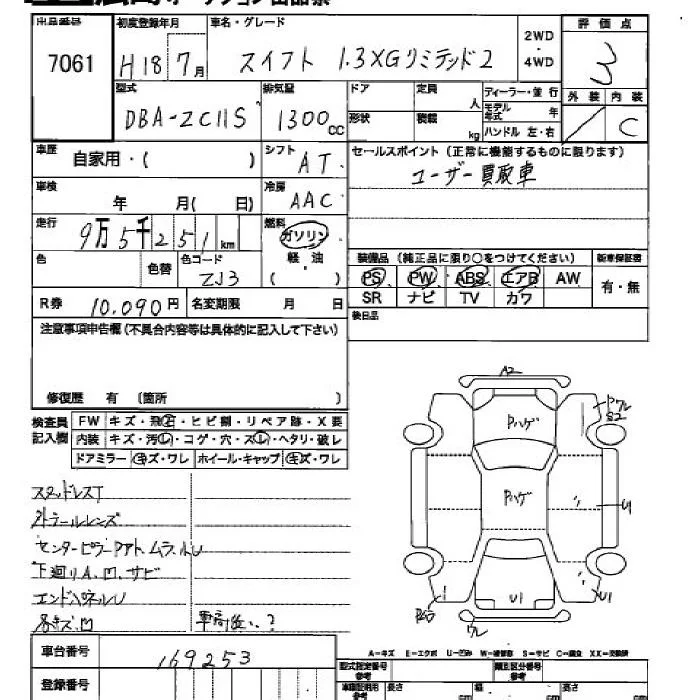 出品番号
7061
初度登録年月
H18 7月
車名・グレード
スイフト 1.3XGリミテッド2
2WD
・
4WD
評価点
3
型式
DBA-ZC11S
排気量
1300cc
ドア
定員
人
形状
積載
kg
ディーラー・並行
モデル年式 年
ハンドル 左・右
外装
内装
C
車歴
自家用・( )
シフト
AT
セールスポイント(正常に機能するものに限ります)
ユーザー買取車
車検
年 月( 日)
冷房
AAC
走行
9万5千251km
燃料
ガソリン
軽・油
( )
色
色替
色コード
ZJ3
装備品(純正品に限り○をつけてください)
新車保証書
PS PW ABS エアB AW
SR ナビ TV カワ
有・無
R券 10,090円
名変期限 月 日
後日品
注意事項申告欄(不具合内容等は具体的に記入して下さい)
修復歴 有 (箇所 )
検査員記入欄
FW キズ・飛石・ヒビ割・リペア跡・X要
内装 キズ・汚レ・コゲ・穴・スレ・ヘタリ・破レ
ドアミラー キズ・ワレ ホイール・キャップ キズ・ワレ
スタッドレスT
外ラールレンズ
センターピラーPアト、ムラ、小U
下廻りA、凹、サビ
エンドパネルU
各キズ、凹
車高低い?
A2
Pハゲ
Pハゲ
U1
U1
ワレ
S2
A-キズ E-エクボ U-凹み W-補修跡 S-サビ C-腐食 XX-交換済
車台番号
169253
登録番号
型式指定番号
参考
類別区分番号
参考
長さ cm
幅 cm
高さ cm